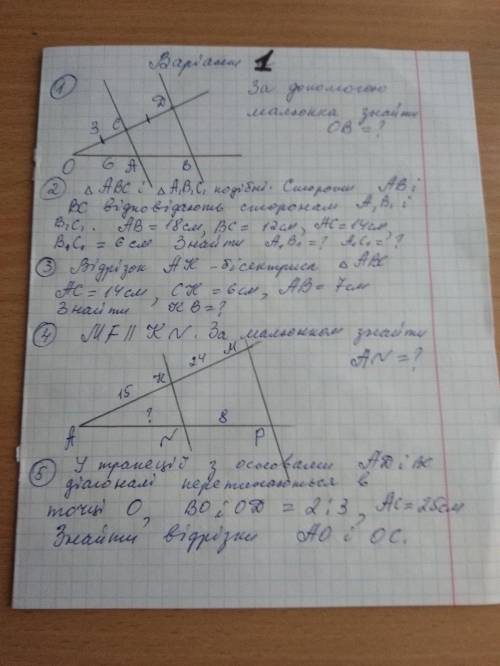 Варіант 1
① За допомогою
малюнка знайти
OB = ?
3 C D
O 6 A B
② △ ABC і △ A₁B₁C₁ подібні. Сторони AB і
BC відповідають сторонам A₁B₁ і
B₁C₁. AB = 18см, BC = 12см, AC = 14см,
B₁C₁ = 6см Знайти A₁B₁ = ? A₁C₁ = ?
③ Відрізок AK - бісектриса △ ABC
AC = 14см, CK = 6см, AB = 7см
Знайти KB = ?
④ MP || KN. За малюнком знайти
AN = ?
15 K 24 M
A ? N 8 P
⑤ У трапецій з основами AD і BC
діагоналі перетинаються в
точці O, BO : OD = 2 : 3, AC = 25см
Знайти відрізки AO і OC.